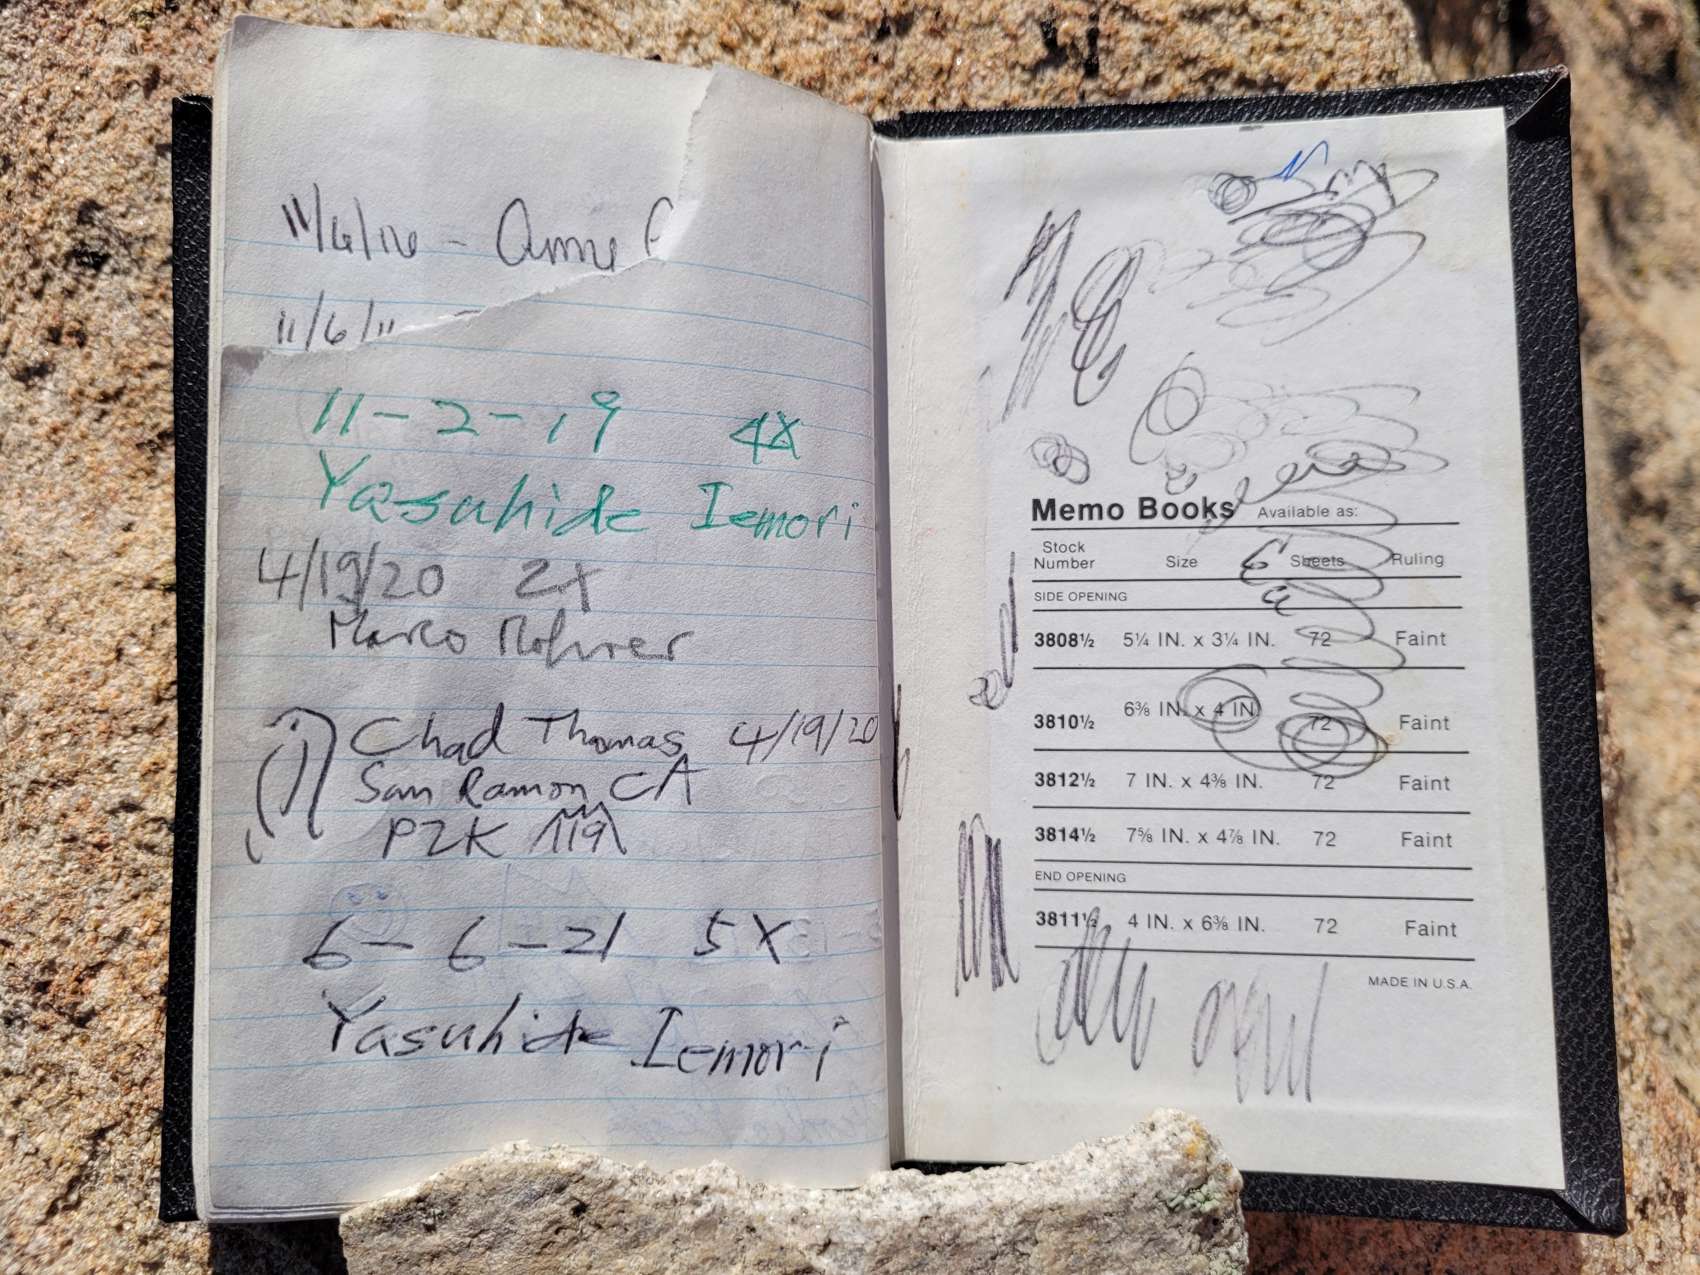 11/6/16 - Anne
11/6/1
11-2-19 4X
Yasuhide Iemori
4/19/20 2x
Marco Rohrer
Chad Thomas 4/19/20
San Ramon CA
PZK
6-6-21 5X
Yasuhide Iemori
Memo Books Available as:
Stock Number Size Sheets Ruling
SIDE OPENING
3808½ 5¼ IN. x 3¼ IN. 72 Faint
3810½ 6⅜ IN. x 4 IN. 72 Faint
3812½ 7 IN. x 4⅜ IN. 72 Faint
3814½ 7⅝ IN. x 4⅞ IN. 72 Faint
END OPENING
3811½ 4 IN. x 6⅜ IN. 72 Faint
MADE IN U.S.A.